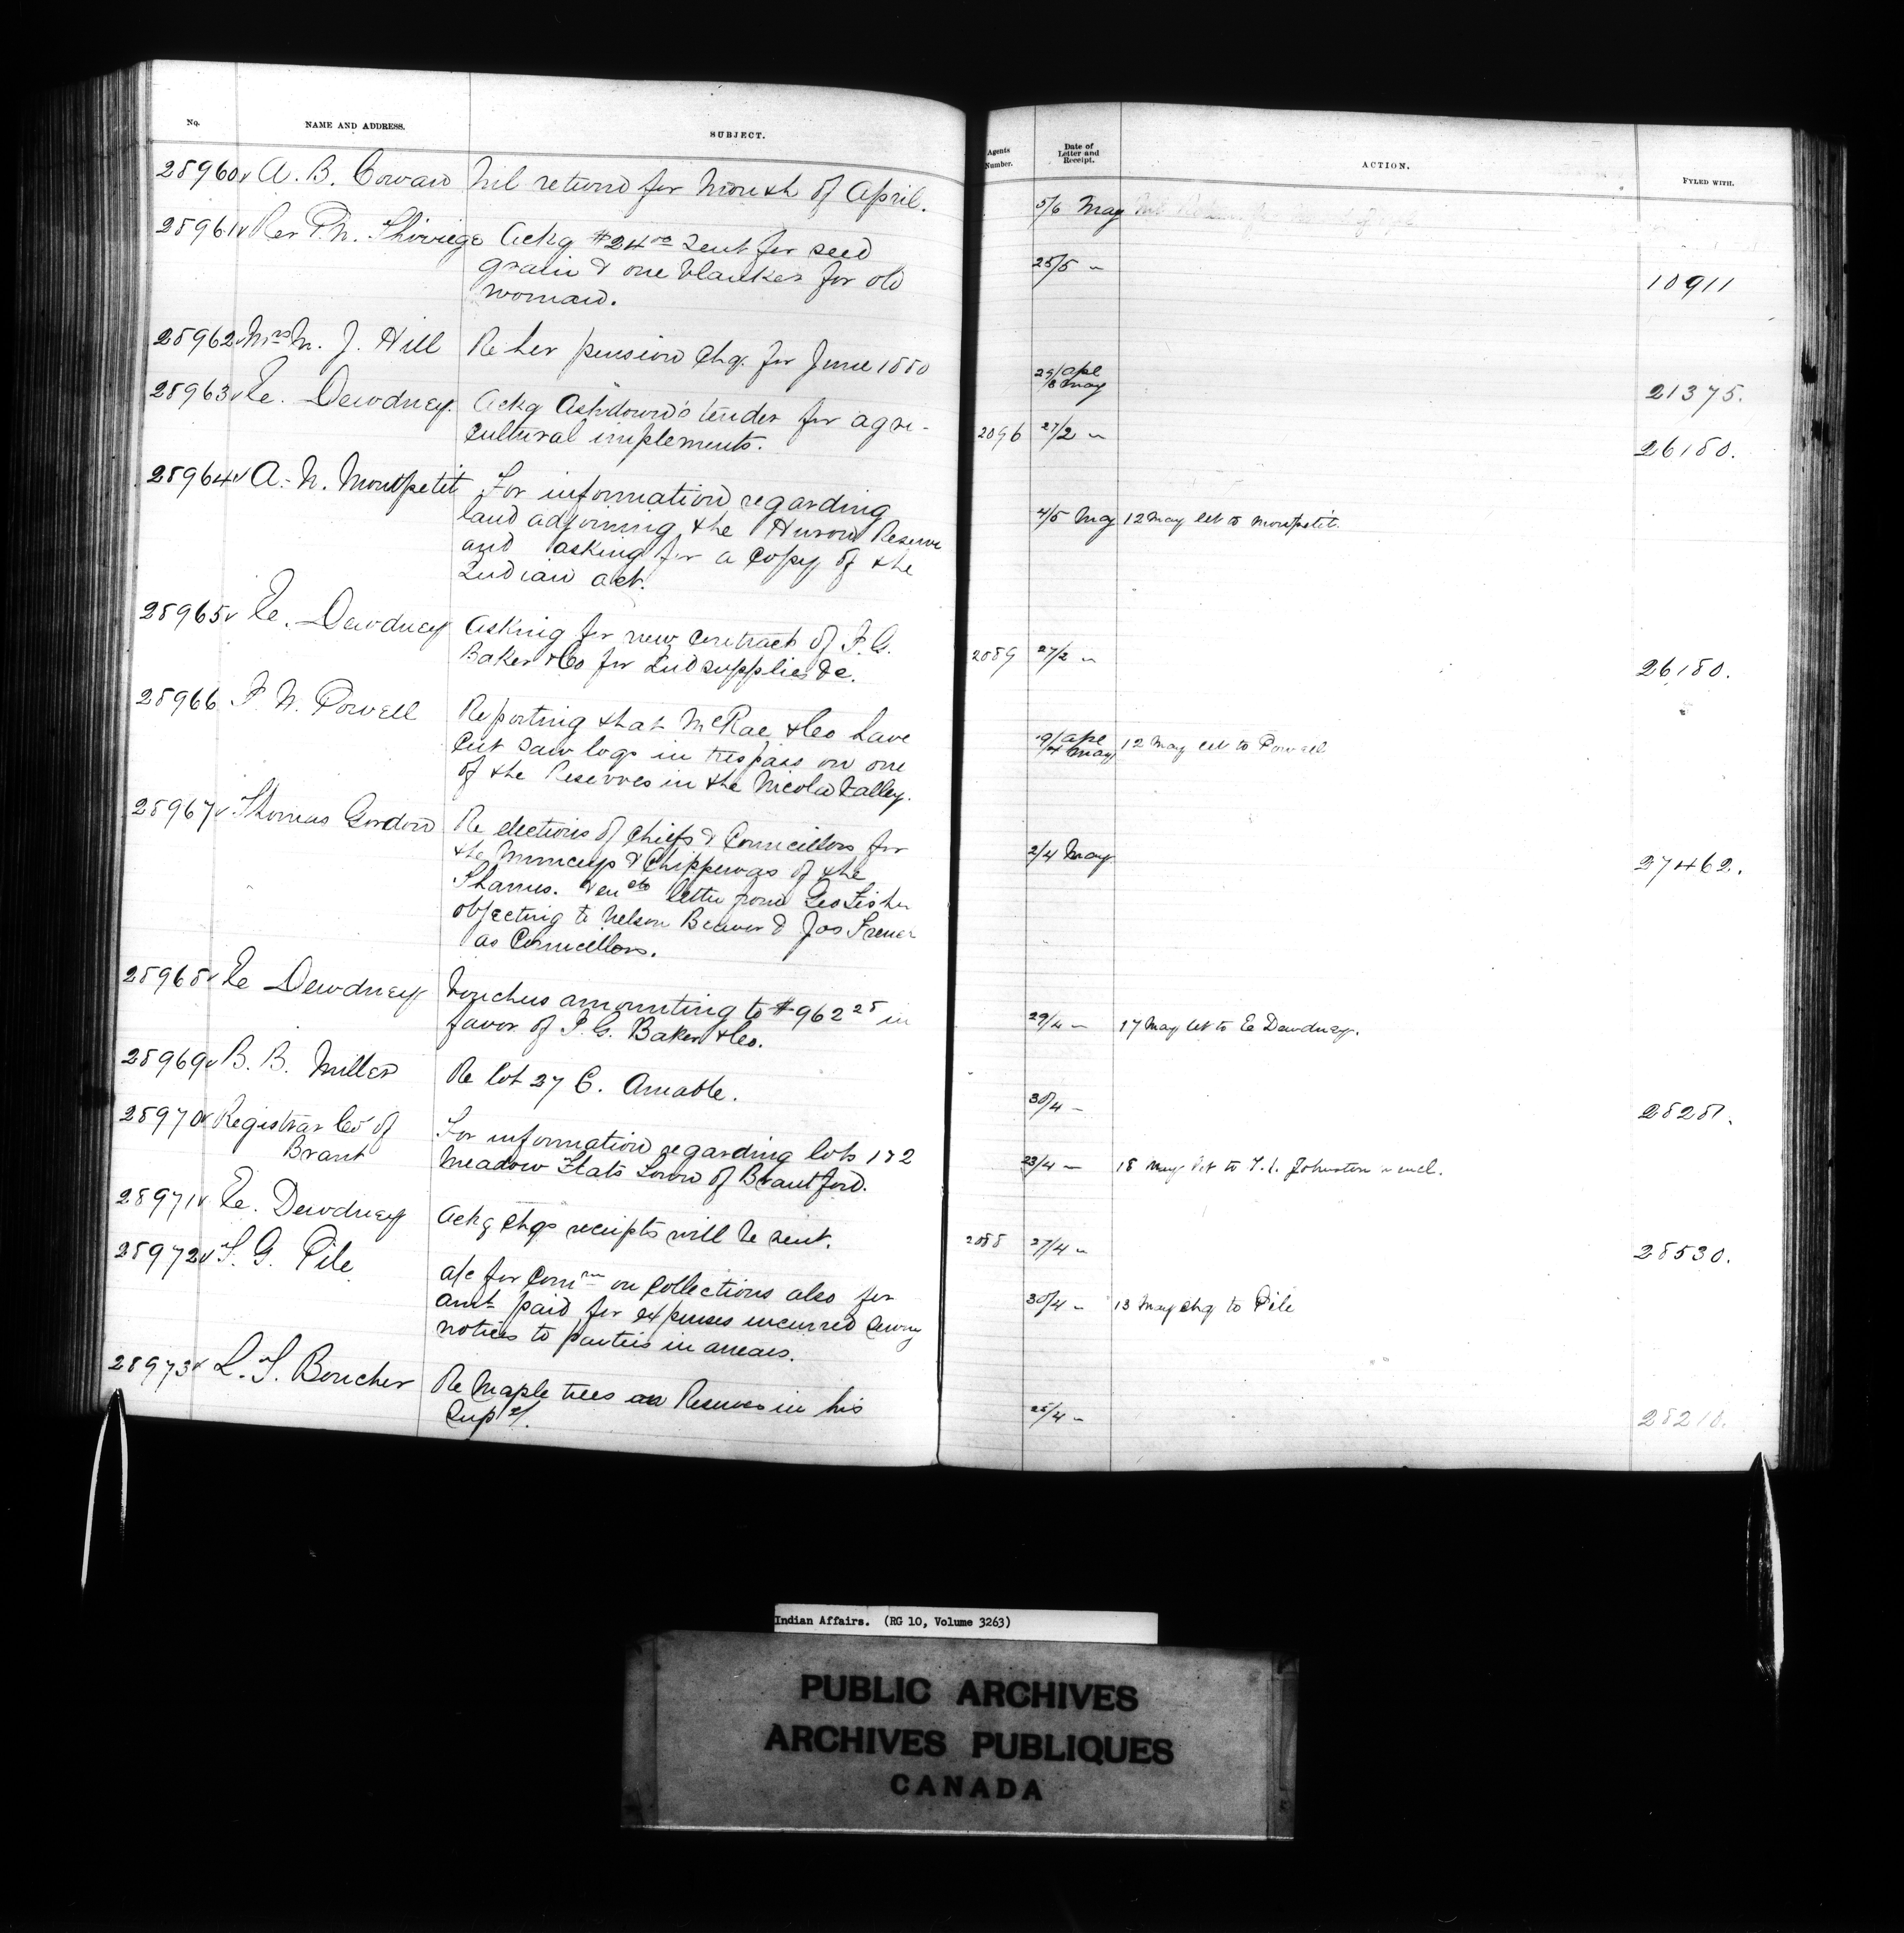 No. NAME AND ADDRESS. SUBJECT. Agents Number. Date of Letter and Receipt. ACTION. FYLED WITH.
28960 A. B. Cowan Nil return for Month of April. 5/6 May
28961 Rev P. N. Ackg $24 00 sent for seed 25/5 " 10911
grain & one blanket for old
woman.
28962 Mrs M. J. Hill Re her pension chq. for June 1880 29/Apl 21375.
/8 May
28963 E. Dewdney. Ackg Ashdown's tender for agri- 2096 27/2 " 26180.
cultural implements.
28964 A. N. Montpetit For information regarding 4/5 May 12 May let to Montpetit.
land adjoining the Huron Reserve
and asking for a copy of the
Indian act.
28965 E. Dewdney Asking for new contract of I. G. 2089 27/2 " 26180.
Baker & Co for Ind supplies &c.
28966 I. W. Powell Reporting that McRae & Co have 19/Apl 12 May let to Powell
cut saw logs in trespass on one /4 May
of the Reserves in the Nicola Valley.
28967 Thomas Gordon Re elections of Chiefs & Councillors for 2/4 May 27462.
the Munceys & Chippewas of the
Thames. & letter from Geo Fisher
objecting to Nelson Beaver & Jos
as Councillors.
28968 E Dewdney Vouchers amounting to $962 25 in 29/4 " 17 May let to E Dewdney.
favor of I. G. Baker & Co.
28969 B. B. Miller Re lot 27 C. Amable. 30/4 " 28281.
28970 Registrar Co of For information regarding lots 1 & 2 23/4 " 18 May let to Johnston encl.
Brant Meadow Flats Town of Brantford.
28971 E. Dewdney Ackg chqs receipts will be sent. 2088 27/4 " 28530.
28972 T. G. Pile a/c for Comm on Collections also for 30/4 " 13 May chq to Pile
amt paid for expenses incurred serving
notices to parties in arrears.
28973 L. F. Boucher Re Maple trees on Reserves in his 28/4 " 28210.
Supy.
Indian Affairs. (RG 10, Volume 3263)
PUBLIC ARCHIVES
ARCHIVES PUBLIQUES
CANADA